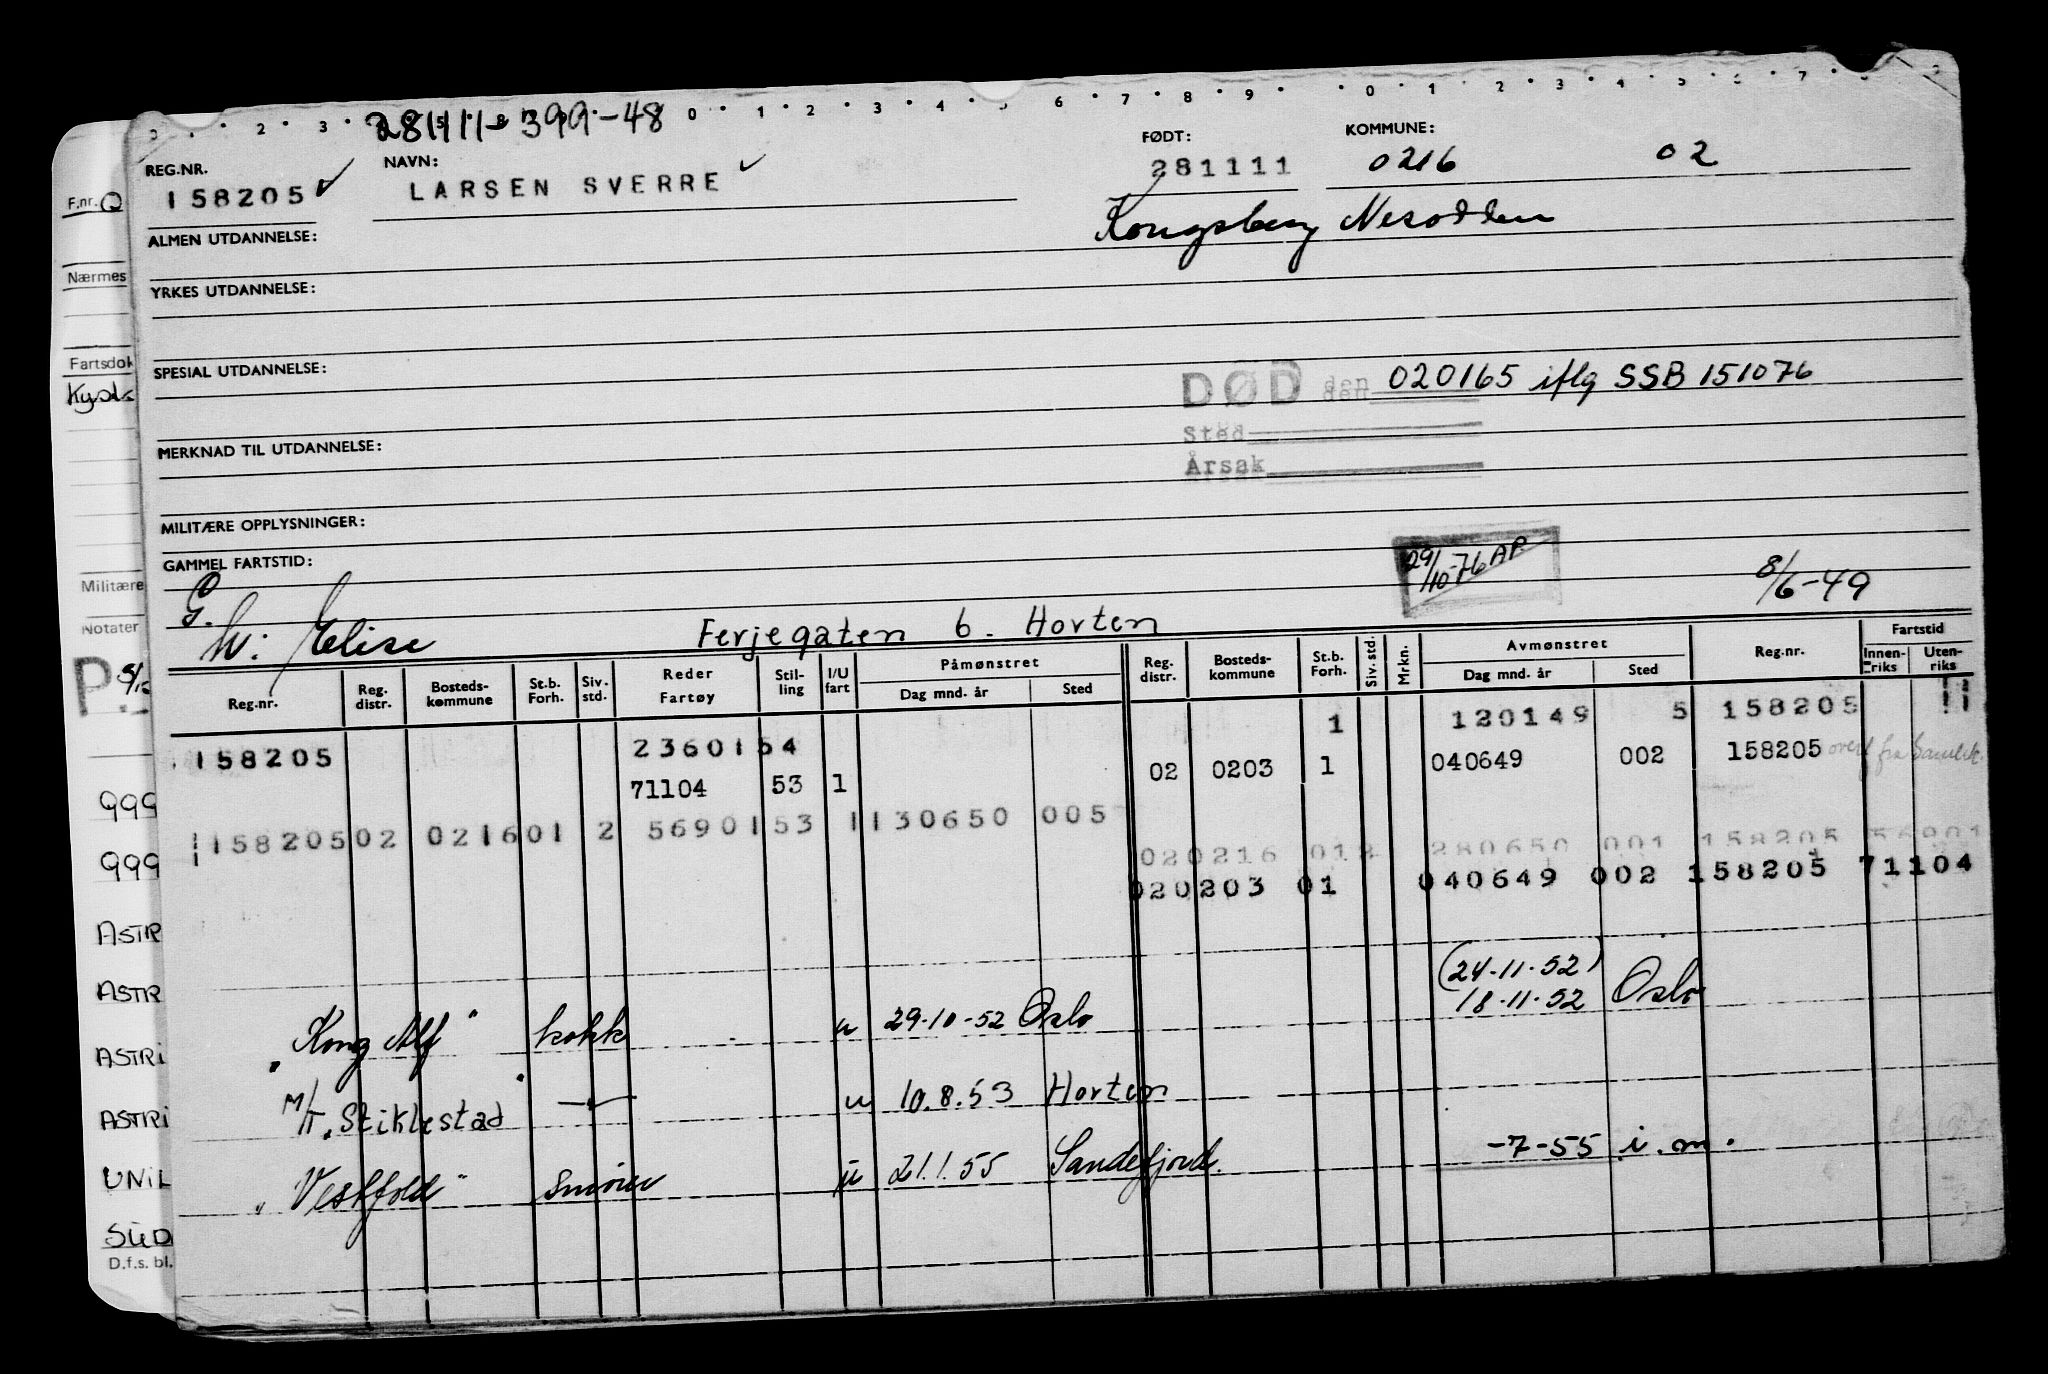 281111-399-48
REG.NR. NAVN: FØDT: KOMMUNE:
158205 LARSEN SVERRE 281111 0216 02
Kongsberg Nesodden
ALMEN UTDANNELSE:
YRKES UTDANNELSE:
SPESIAL UTDANNELSE:
DØD den 020165 iflg SSB 151076
Sted
Årsak
MERKNAD TIL UTDANNELSE:
MILITÆRE OPPLYSNINGER:
GAMMEL FARTSTID:
29/10-76 AP
8/6-49
G.
hu: Elise Ferjegaten 6. Horten
Reg.nr. Reg. distr. Bosteds-kommune St.b. Forh. Siv. std. Reder Fartøy Stil-ling I/U fart Påmønstret Dag mnd. år Sted Reg. distr. Bosteds-kommune St.b. Forh. Siv. std. Mrkn. Avmønstret Dag mnd. år Sted Reg.nr. Fartstid Innen-riks Uten-riks
1 120149 5 158205 11
158205 2360154
02 0203 1 040649 002 158205 overf fra
71104 53 1
115820502 021601 2 5690153 1130650 005
020216 012 280650 001 158205 56901
020203 01 040649 002 158205 71104
(24-11-52)
18-11-52 Oslo
"Kong Alf" kokk u 29-10-52 Oslo
M/T "Stiklestad" u 10.8.53 Horten
"Vestfold" smører u 21.1.55 Sandefjord. -7-55 i.m.
F.nr. 0
Nærmes
Fartsdok
Kyst
Militære
Notater
P
999
999
ASTR
ASTR
ASTRi
ASTRi
UNiL
SüD
D.f.s. bl.